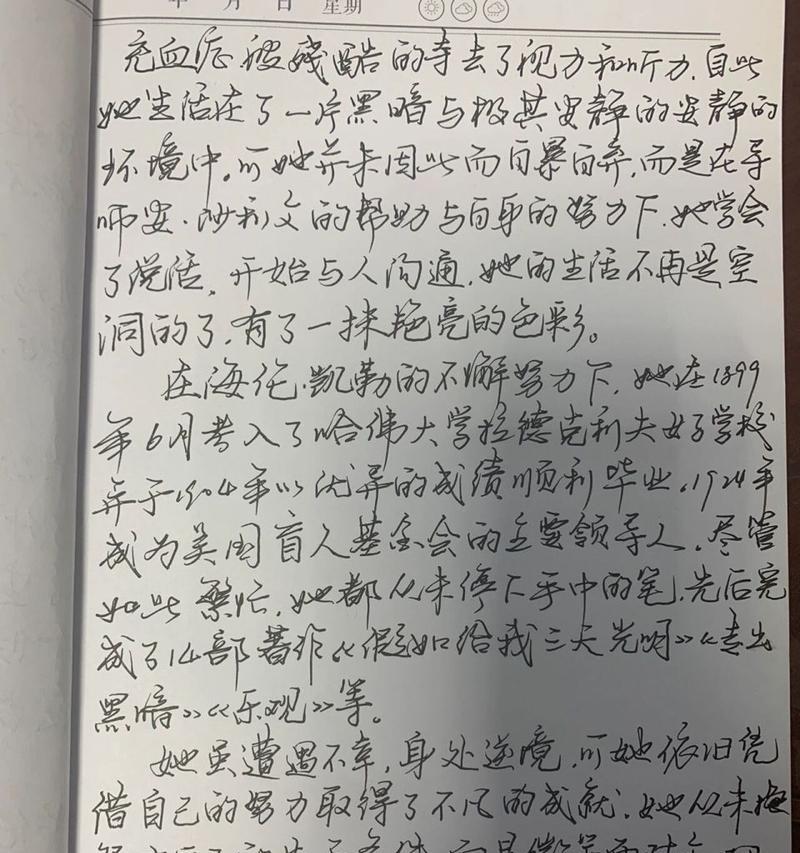 年 月 日 星期
充血症被残酷的夺去了视力和听力.自此
她生活在了一片黑暗与极其安静的安静的
环境中,可她并未因此而自暴自弃,而是在导
师安·沙利文的帮助与自身的努力下,她学会
了说话,开始与人沟通,她的生活不再是空
洞的了,有了一抹艳亮的色彩。
在海伦·凯勒的不懈努力下,她在1899
年6月考入了哈佛大学拉德克利夫女子学校
并于1904年以优异的成绩顺利毕业,1924年
成为美国盲人基金会的主要领导人,尽管
如此繁忙,她都从未停下手中的笔,先后完
成了14部著作《假如给我三天光明》《走出
黑暗》《乐观》等。
她虽遭遇不幸,身处逆境,可她依旧凭
借自己的努力取得了不凡的成就,她从未抱